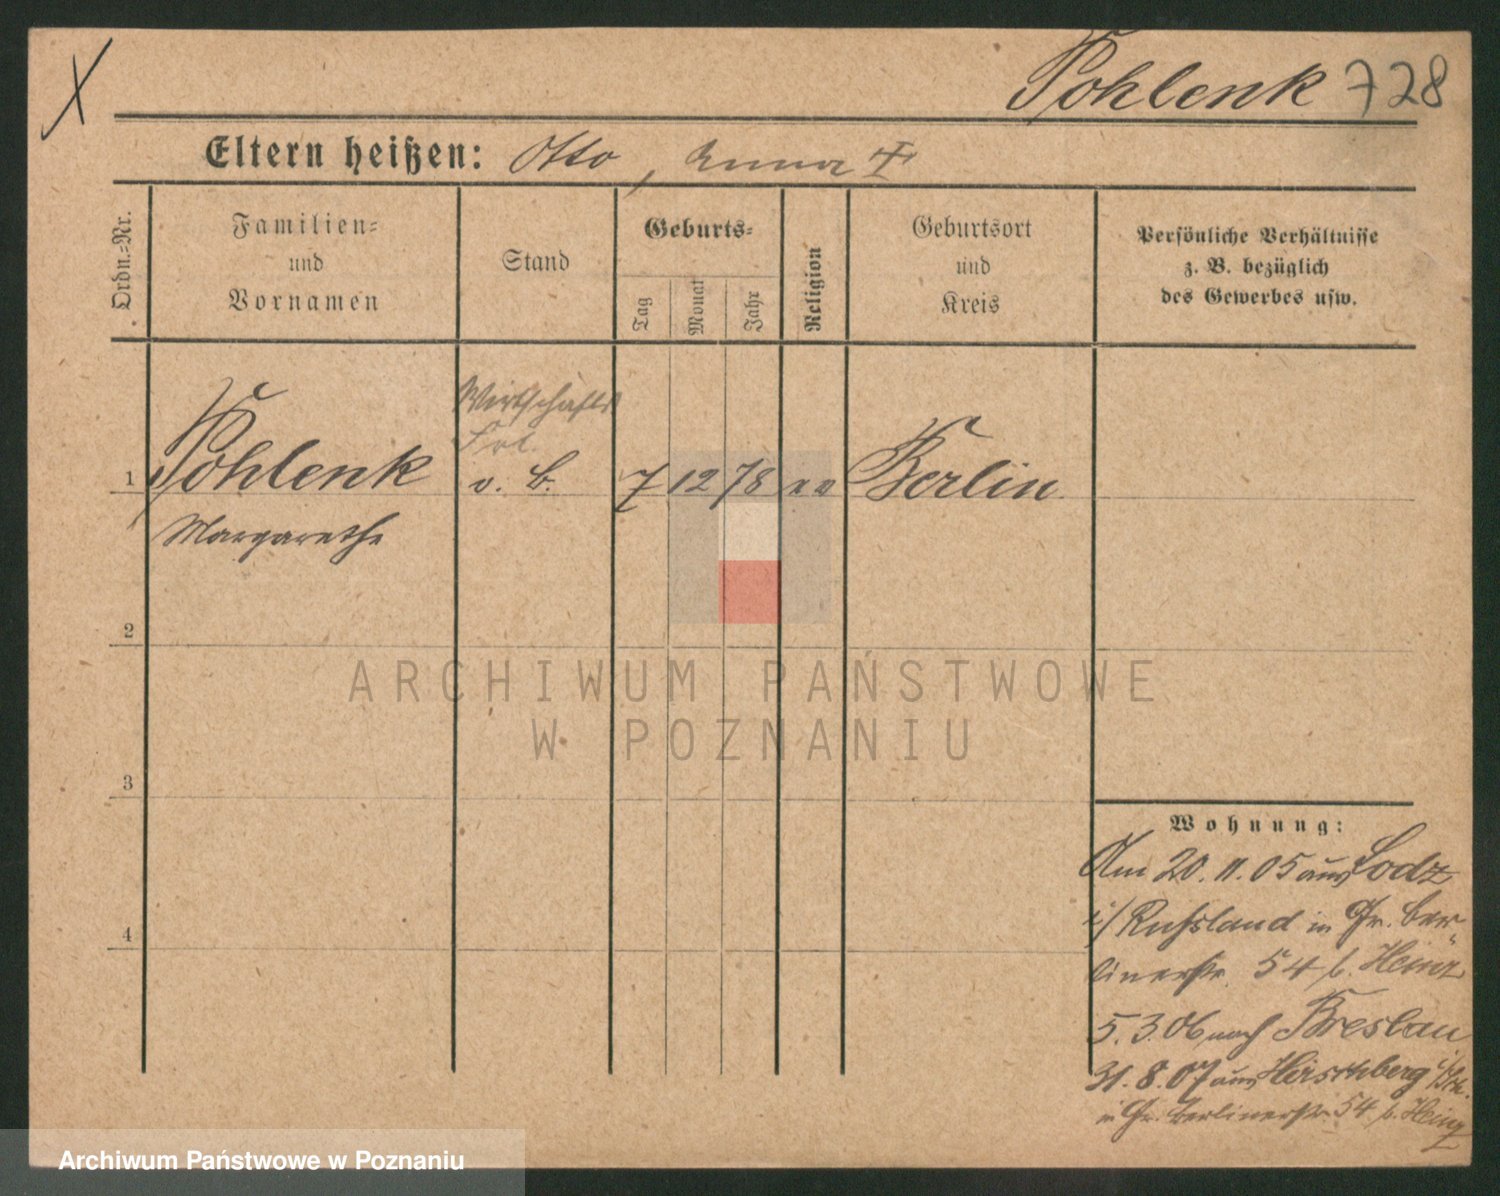 Pohlenk 728
Eltern heißen: Otto, Anna
Ordn.-Nr.
Familien-
und
Vornamen
Stand
Geburts-
Tag
Monat
Jahr
Religion
Geburtsort
und
Kreis
Persönliche Verhältnisse
z. B. bezüglich
des Gewerbes usw.
Wirtschafts
Frl.
1 Pohlenk o. B. 7 12 78 ev Berlin
Margarethe
2
ARCHIWUM PAŃSTWOWE
W POZNANIU
3
4
Wohnung:
Am 20. 11. 05 aus Lodz
i/ Russland in Gr. Ber-
linerstr. 54 b. Heinz
5. 3. 06 nach Breslau
31. 8. 07 aus Hirschberg i/Sch.
in Gr. Berlinerstr. 54 b. Heinz
Archiwum Państwowe w Poznaniu